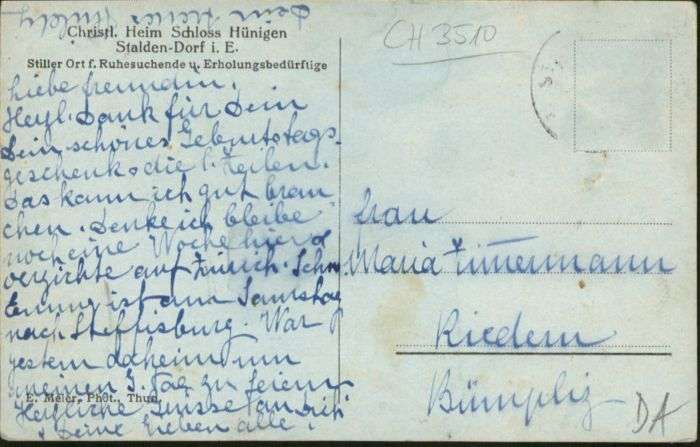 Christl. Heim Schloss Hünigen
Stalden-Dorf i. E.
Stiller Ort f. Ruhesuchende u. Erholungsbedürftige
CH 3510
Liebe Freundin,
Herzl. Dank für Dein
Dein schönes Geburtstags-
geschenk & die l. Zeilen.
Das kann ich gut brau
chen. Denke ich bleibe
noch eine Woche hier &
verzichte auf Zürich.
ist am Samstag
nach Steffisburg. War
gestern daheim um
meinen G. Tag zu feiern
Herzliche Grüsse an Dich
& Deine Lieben alle!
Dein
E. Meier, Phot., Thun.
Frau
Maria Zimmermann
Riedern
Bümpliz
DA